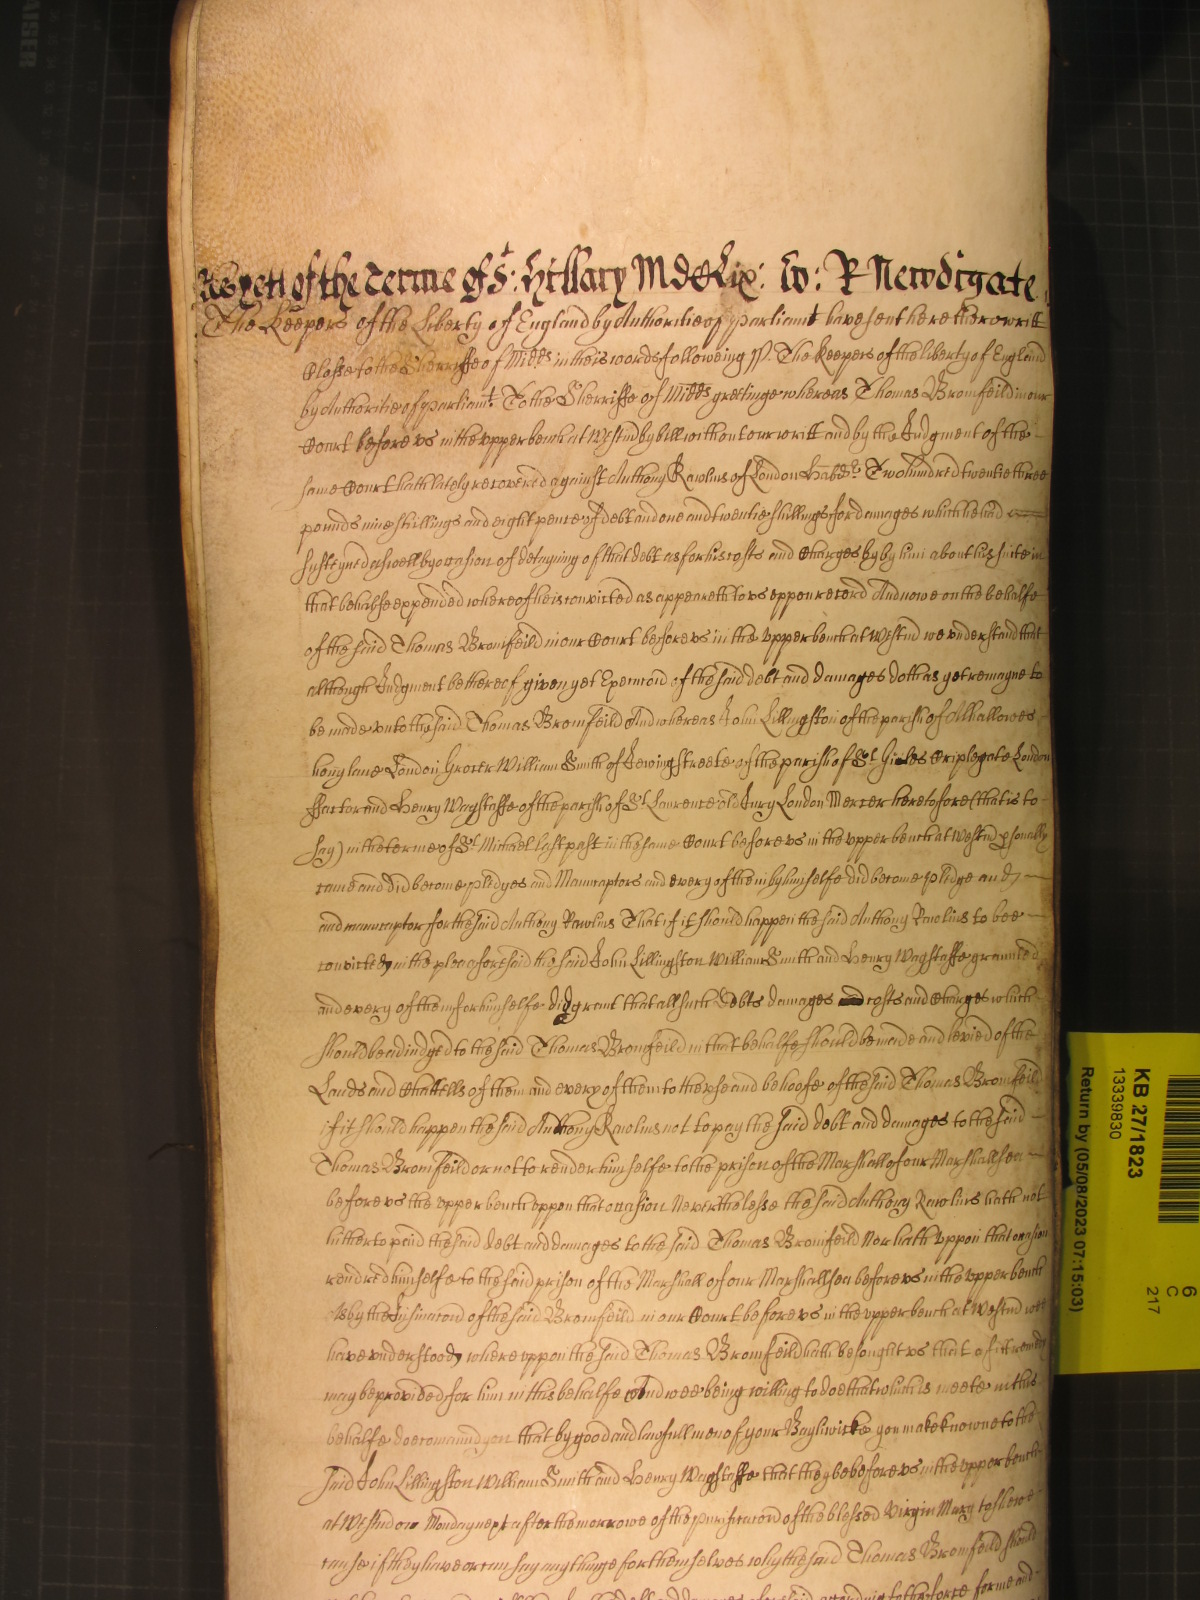 As yett of the Terme of St: Hillary MdcLix: W: R Newdigate
The Keepers of the Liberty of England by Authoritie of parliamt have sent here there writt
Close to the Sherriffe of Midds in theis words following ss. The Keepers of the liberty of England
by Authoritie of parliamt. To the Sherriffe of Midds greetinge whereas Thomas Bromfeild in our
Court before vs in the vpper bench at Westm by bill without our writt and by the Judgment of the
same Court hath lately recovered against Anthony Rawlins of London Habdr. Two hundred twentie three
pounds nine shillings and eight pence of debt and one and twentie shillings for damages which he had
susteyned aswell by occasion of detayning of that debt as for his costs and Charges by him about his suite in
that behalfe expended whereof he is convicted as appeareth to vs vppon record And nowe on the behalfe
of the said Thomas Bromfeild in our Court before vs in the vpper bench at Westm we vnderstand that
although Judgment be thereof given yet Execucon of the said debt and damages doth as yet remayne to
be made vnto the said Thomas Bromfeild And whereas John Lillingston of the parish of Alhallowes
hony lane London Grocer William Smith of Jewing streete of the parish of St Giles Criplegate London
ffactor and Henry Wagstaffe of the parish of St Laurence old Jury London Mercer heretofore (that is to
say) in the terme of St Michael last past in the same Court before vs in the vpper bench at Westm personally
came and did become pledges and Manucaptors and every of them by himselfe did become pledge and
and manucaptor for the said Anthony Rawlins That if it should happen the said Anthony Rawlins to bee
convicted in the plea aforesaid the said John Lillingston William Smith and Henry Wagstaffe graunted
and every of them for himselfe did grant that all such Debts damages costs and Charges which
should be adiudged to the said Thomas Bromfeild in that behalfe should be made and levied of the
Lands and Chattells of them and every of them to the vse and behoofe of the said Thomas Bromfeild
if it should happen the said Anthony Rawlins not to pay the said debt and damages to the said
Thomas Bromfeild or not to render himselfe to the prison of the Marshall of our Marshallsea
before vs the vpper bench vppon that occasion Neverthelesse the said Anthony Rawlins hath not
hitherto paid the said debt and damages to the said Thomas Bromfeild Nor hath vppon that occasion
rendred himselfe to the said prison of the Marshall of our Marshallsea before vs in the vpper bench
As by the Insinuacon of the said Bromfeild in our Court before vs in the vpper bench at Westm wee
have vnderstood where vppon the said Thomas Bromfeild hath besought vs that a fit remedy
may be provided for him in this behalfe And wee being willing to doe that which is meete in this
behalfe doe comaund you that by good and lawfull men of your Bayliwicke you make knowne to the
said John Lillingston William Smith and Henry Wagstaffe that they be before vs in the vpper bench
at Westm on Monday next after the morrowe of the purificacon of the blessed Virgin Mary to shewe
cause if they have or can say any thinge for themselves why the said Thomas Bromfeild should
KB 27/1823
13339830
Return by (05/08/2023 07:15:03)
6
C
217